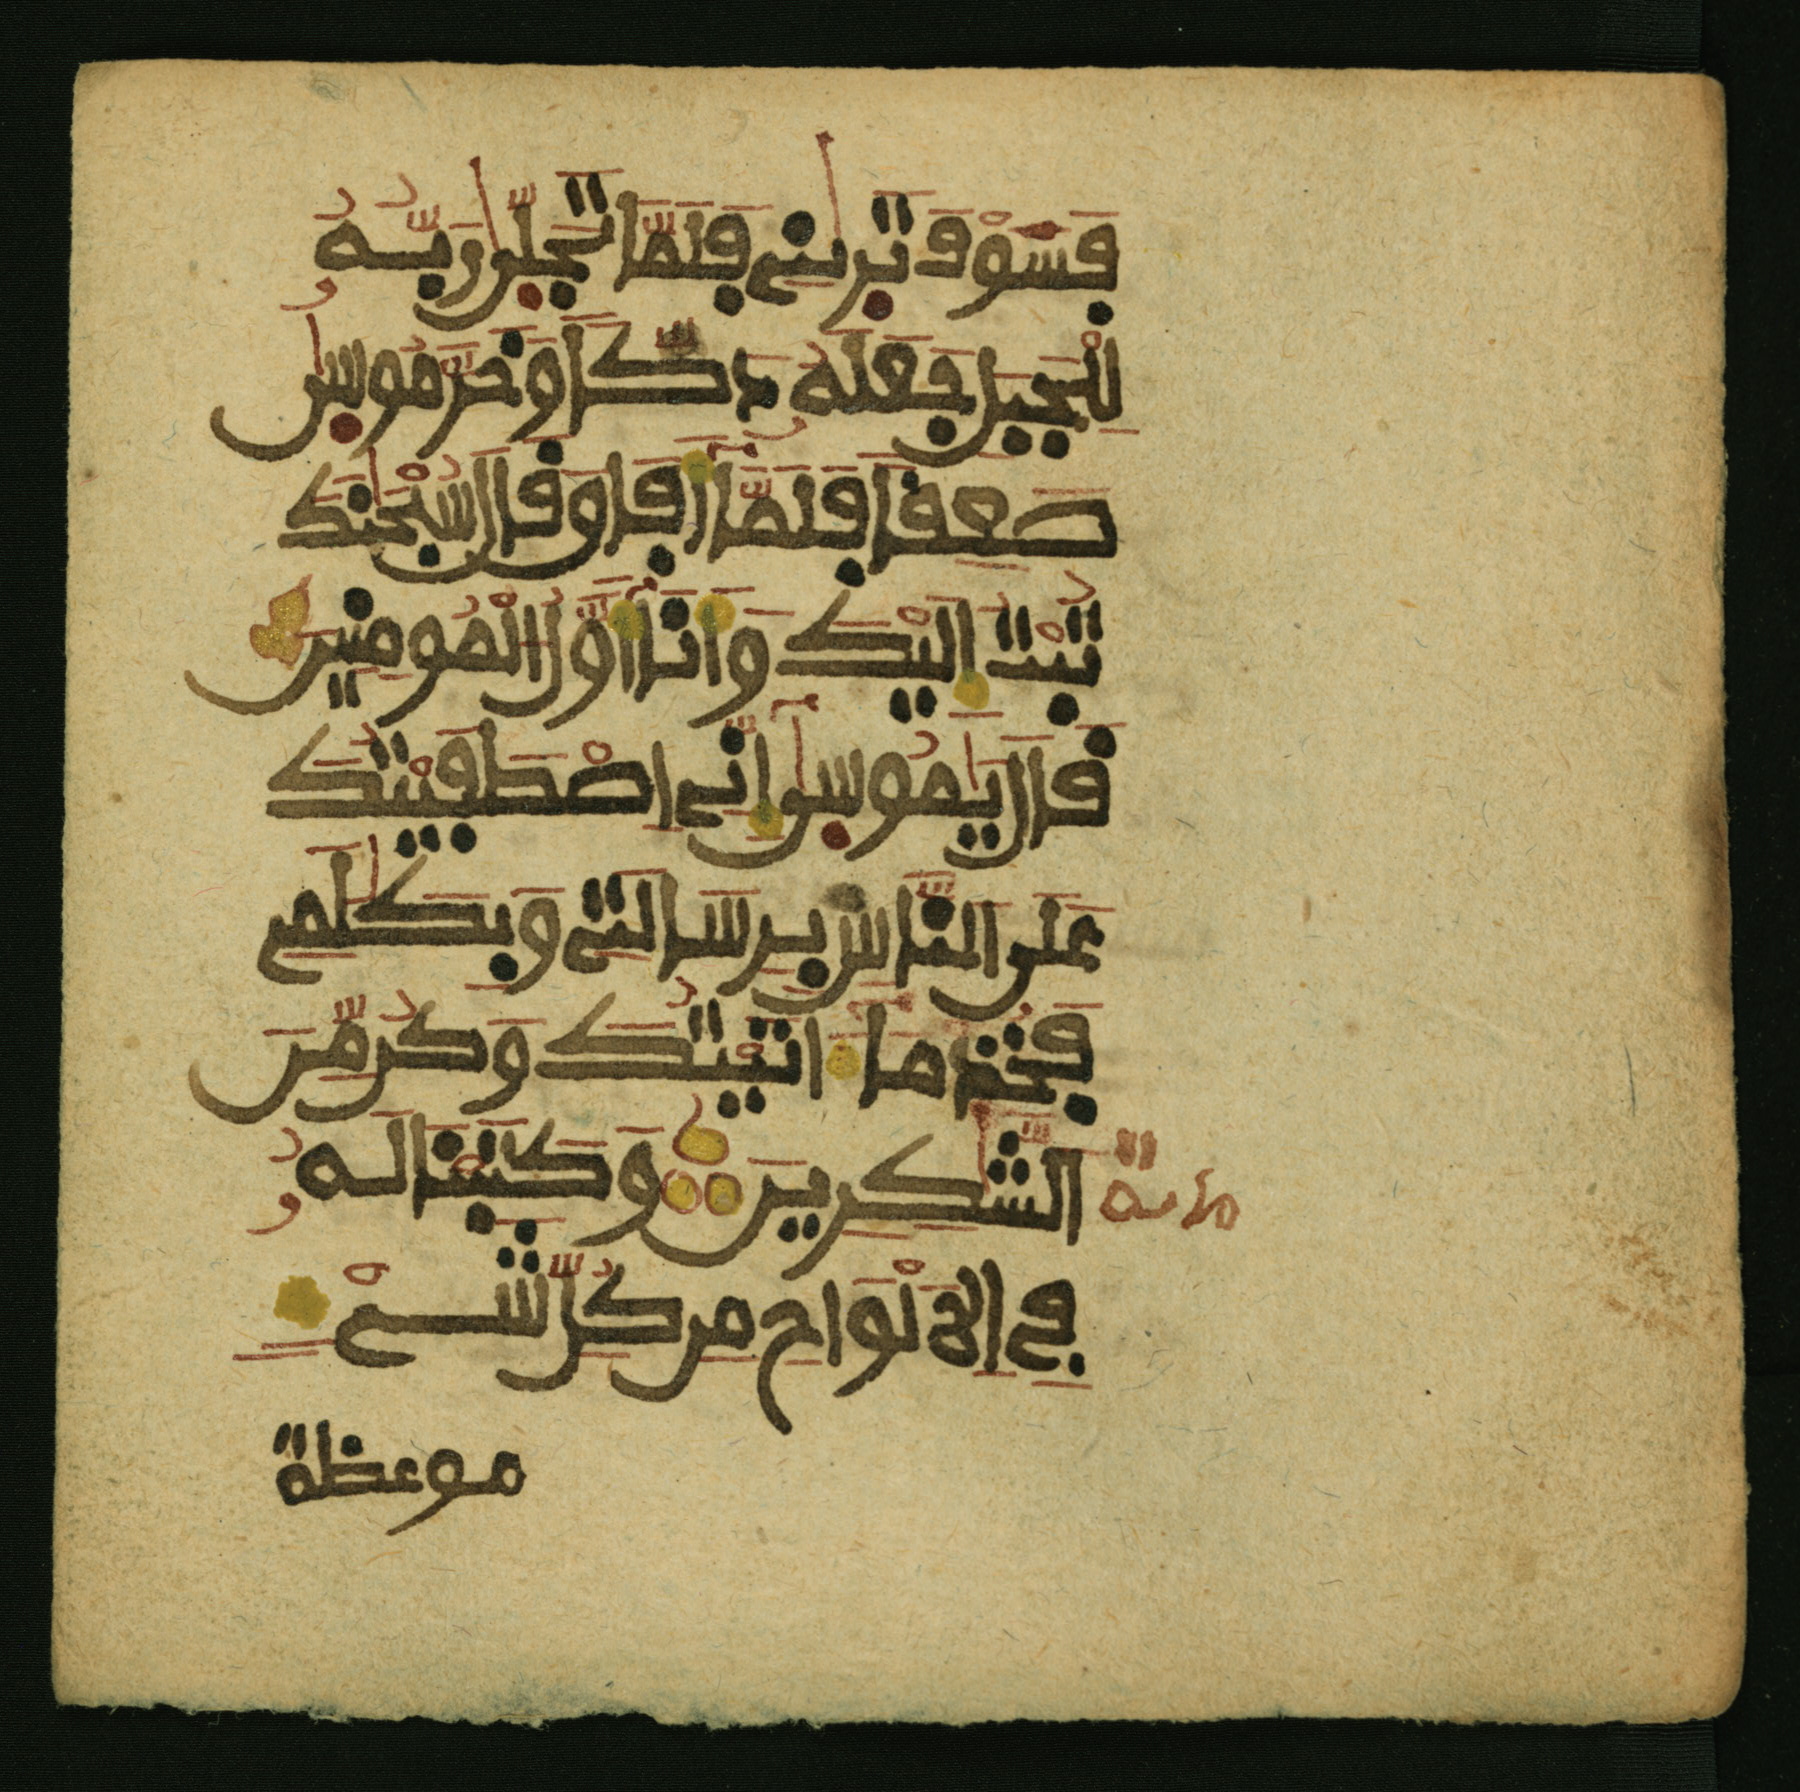 فَسَوْفَ تَرٰىنِے فَلَمَّا تَجَلّٰى رَبُّهُۥ
لِلْجَبَلِ جَعَلَهُۥ دَكّاً وَخَرَّ مُوسٰى
صَعِقاً فَلَمَّآ أَفَاقَ قَالَ سُبْحٰنَكَ
تُبْتُ إِلَيْكَ وَأَنَآ أَوَّلُ الْمُومِنِينَ
قَالَ يٰمُوسٰىٓ إِنِّے اِصْطَفَيْتُكَ
عَلَى النَّاسِ بِرِسَالَتِے وَبِكَلٰمِے
فَخُذْ مَآ ءَاتَيْتُكَ وَكُن مِّنَ
الشّٰكِرِينَ وَكَتَبْنَا لَهُۥ
فِے اِ۬لَالْوَاحِ مِن كُلِّ شَےْءٍ
موعظة